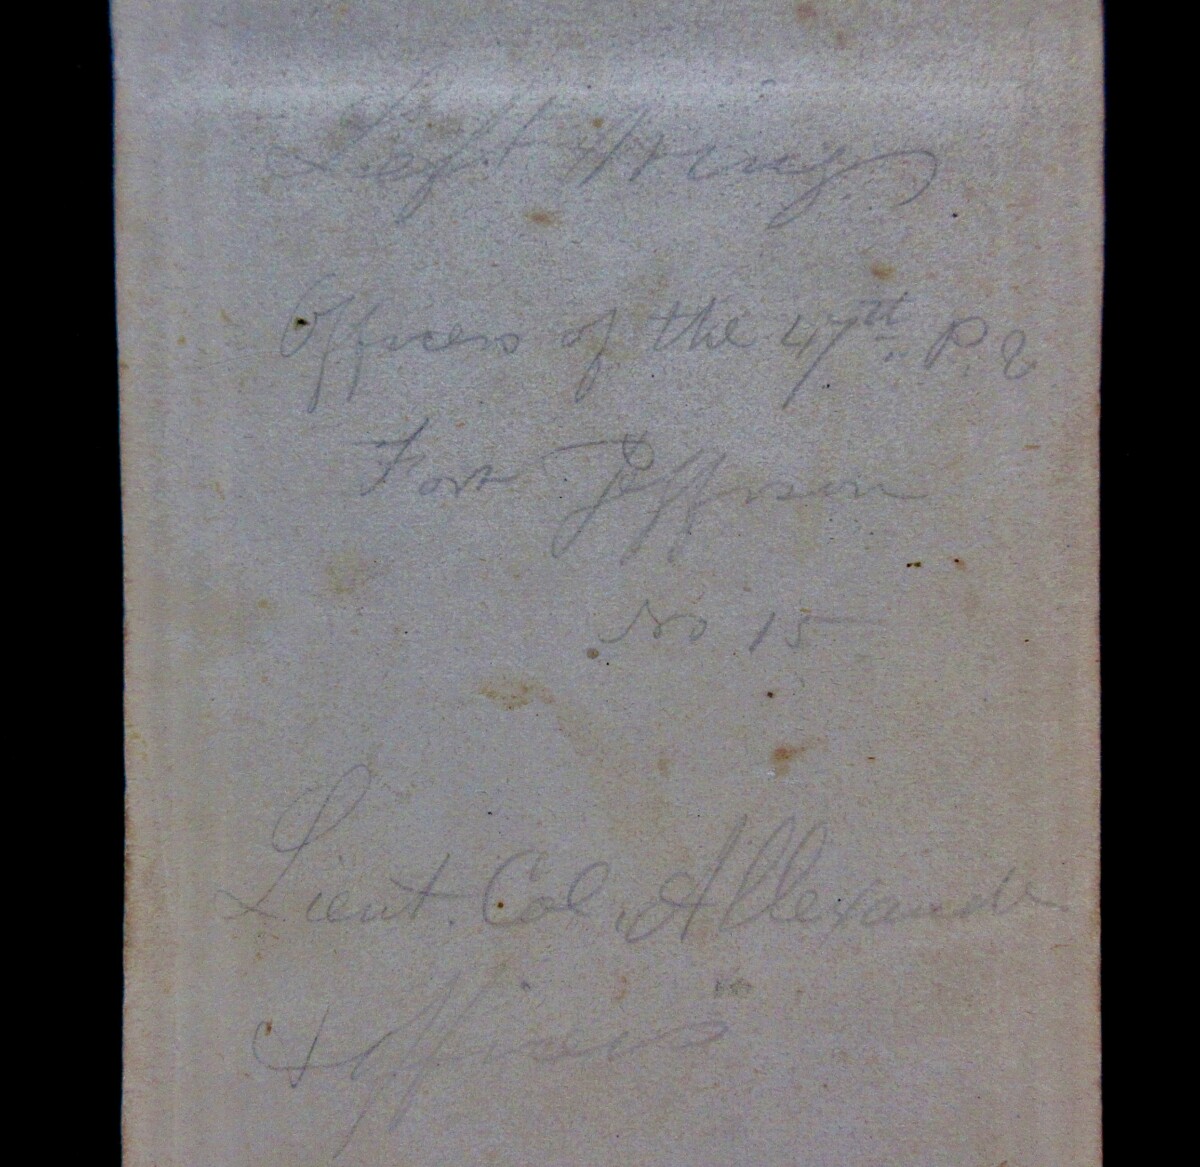 Left Wing
Officers of the 47th. P. V
Fort Jefferson
No 15
Lieut. Col. Allexander
& Officers